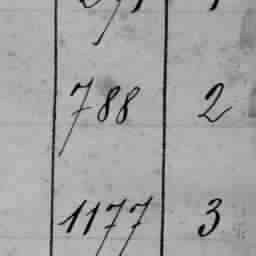 788 2
1177 3